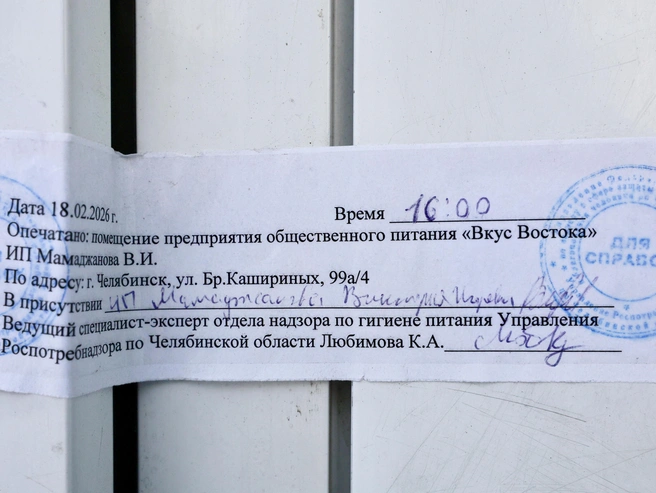 Дата 18.02.2026 г.
Время 16:00
Опечатано: помещение предприятия общественного питания «Вкус Востока»
ИП Мамаджанова В.И.
По адресу: г. Челябинск, ул. Бр.Кашириных, 99а/4
В присутствии ИП Мамаджанова Виктория
Ведущий специалист-эксперт отдела надзора по гигиене питания Управления
Роспотребнадзора по Челябинской области Любимова К.А.
ДЛЯ